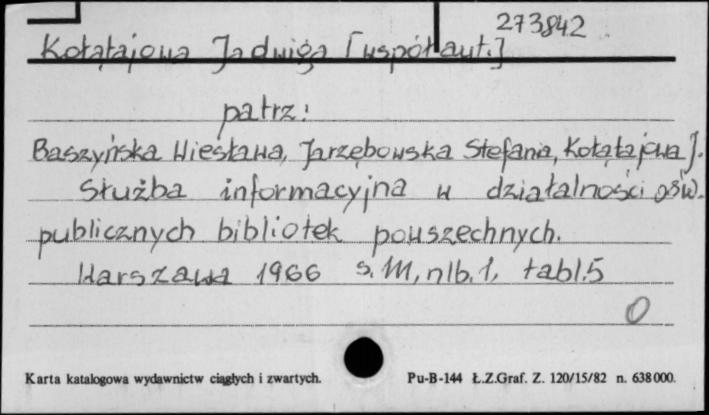 273842
Kołątajowa Jadwiga [współaut.]
patrz:
Baszyńska Wiesława, Jarzębowska Stefania, Kołątajowa J.
Służba informacyjna w działalności ośw.
publicznych bibliotek powszechnych.
Warszawa 1966 s. 111, nlb. 1, tabl. 5
0
Karta katalogowa wydawnictw ciągłych i zwartych. Pu-B-144 Ł.Z.Graf. Z. 120/15/82 n. 638000.